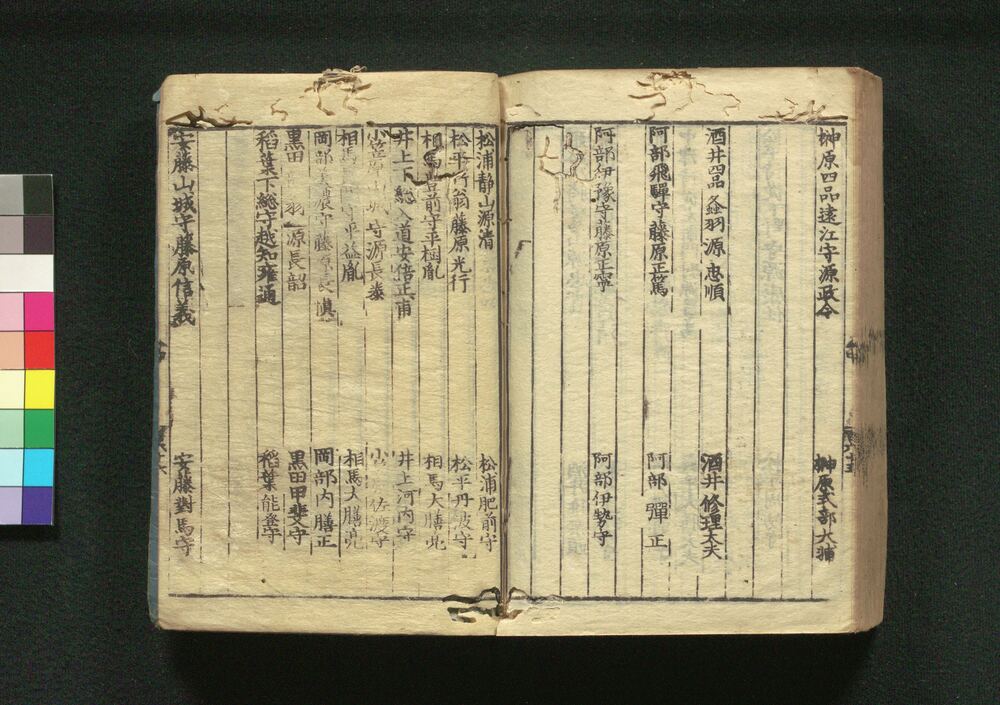 榊原四品遠江守源政令
榊原式部大輔
酒井四品 源忠順
酒井修理大夫
阿部飛驒守藤原正篤
阿部彈正
阿部伊豫守藤原正寧
阿部伊勢守
松浦静山源清
松浦肥前守
松平 翁藤原光行
松平丹波守
相馬豊前守平 胤
相馬大膳亮
井上下総入道安倍正甫
井上河内守
守源長泰
小 佐渡守
相馬 守平益胤
相馬大膳亮
岡部美濃守藤原長慎
岡部内膳正
黒田 羽 源長韶
黒田甲斐守
稻葉下総守越知雍通
稻葉能登守
安藤山城守藤原信義
安藤對馬守